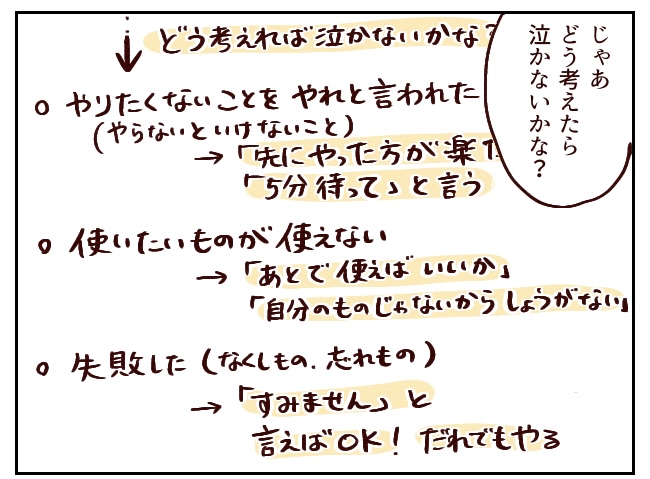 じゃあ
どう考えたら
泣かないかな？
どう考えれば泣かないかな？
○ やりたくないことを やれと言われた
(やらないといけないこと)
→「先にやった方が楽だ
「5分待って」と言う
○ 使いたいものが使えない
→「あとで使えばいいか」
「自分のものじゃないからしょうがない」
○ 失敗した(なくしもの、忘れもの)
→「すみません」と
言えばOK! だれでもやる